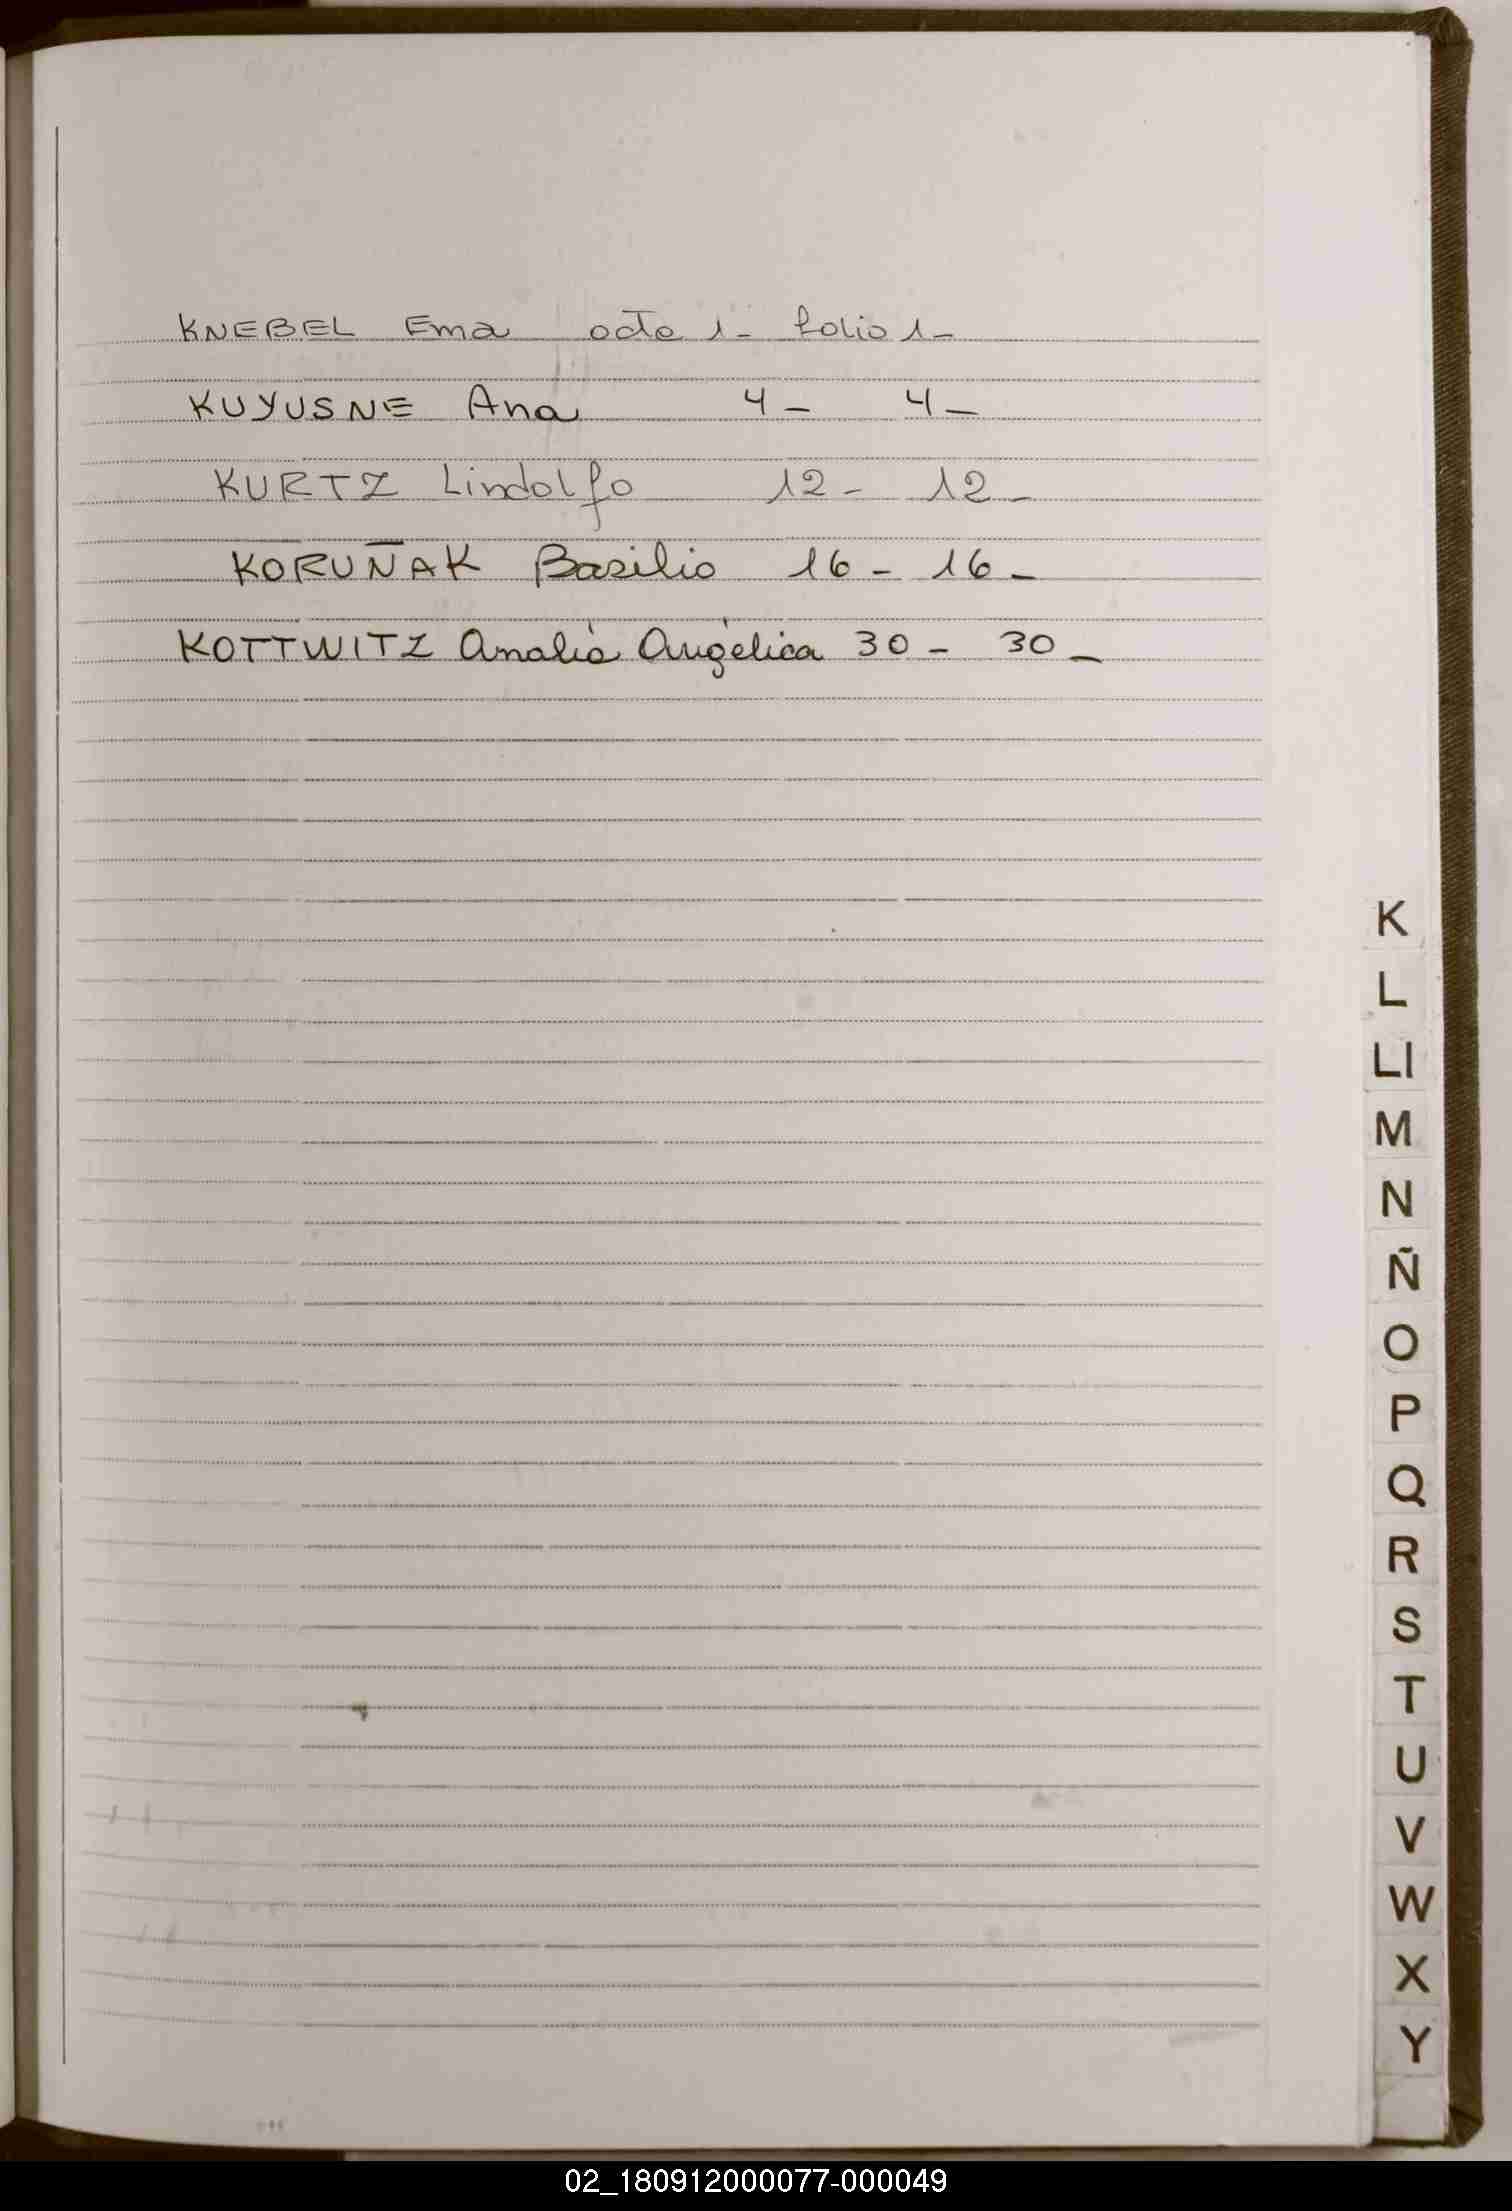 KNEBEL Ema acta 1- folio 1-
KUYUSNE Ana 4- 4-
KURTZ Lindolfo 12- 12-
KORUÑAK Basilio 16- 16-
KOTTWITZ Analia Angélica 30- 30-
K
L
Ll
M
N
Ñ
O
P
Q
R
S
T
U
V
W
X
Y
02_180912000077-000049